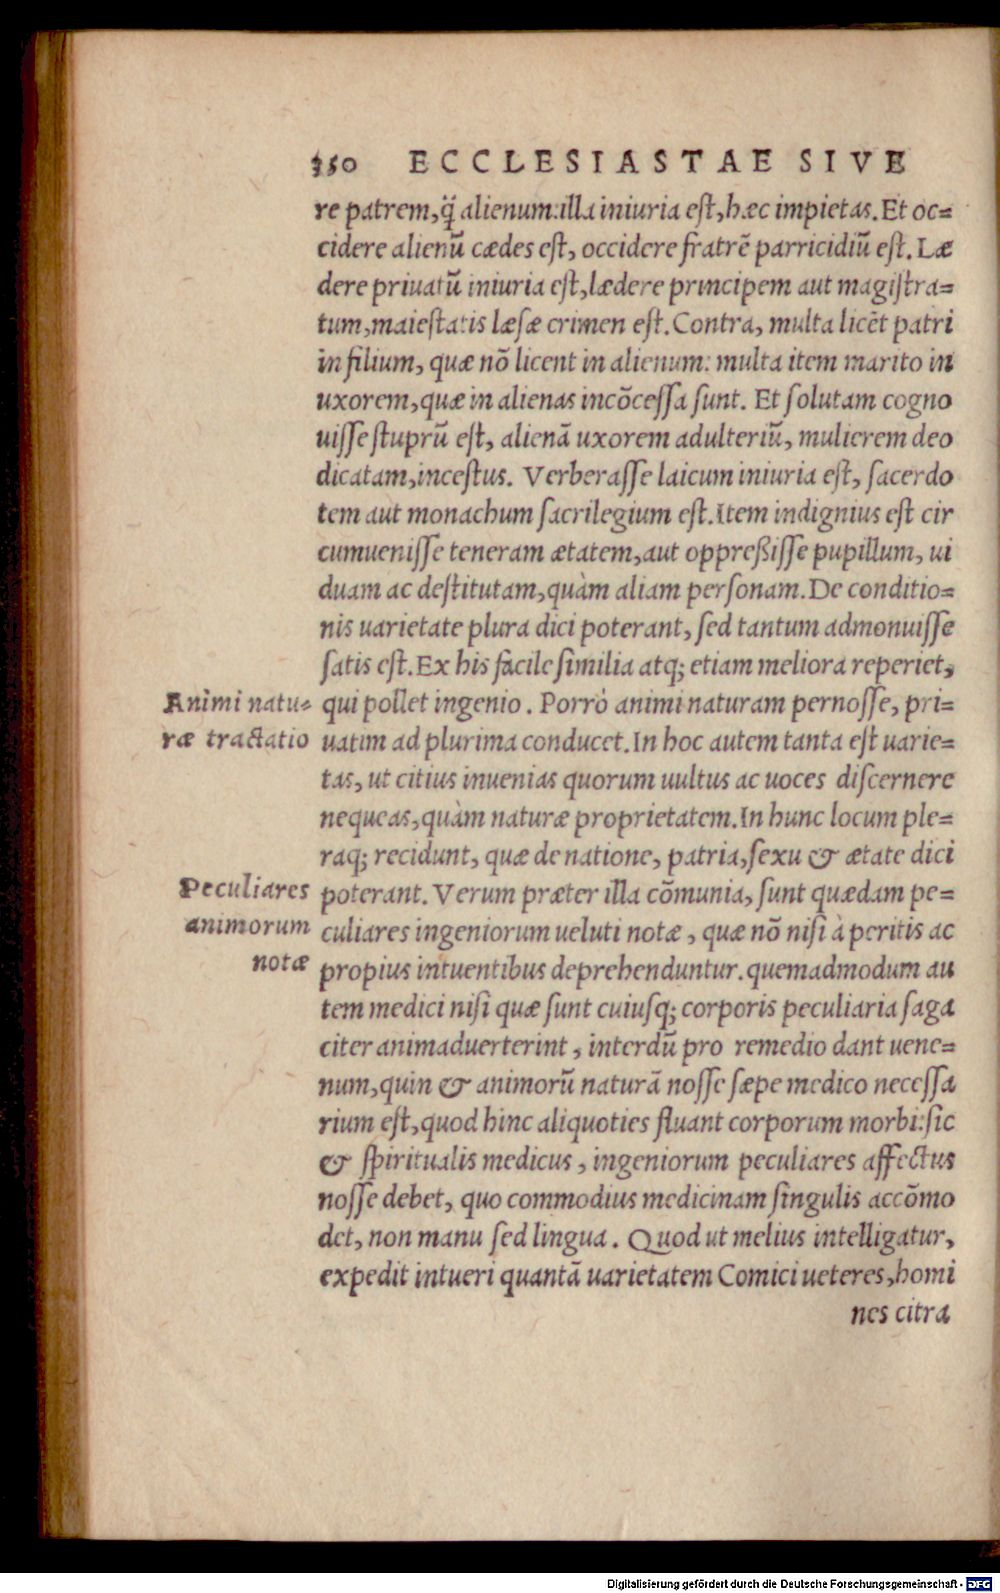 350 ECCLESIASTAE SIVE
re patrem, q̈ alienum: illa iniuria eſt, hæc impietas. Et oc=
cidere alienũ cædes eſt, occidere fratrẽ parricidiũ eſt. Læ
dere priuatũ iniuria eſt, lædere principem aut magiſtra=
tum, maieſtatis læſæ crimen eſt. Contra, multa licẽt patri
in filium, quæ nõ licent in alienum: multa item marito in
uxorem, quæ in alienas incõceſſa ſunt. Et ſolutam cogno
uiſſe ſtuprũ eſt, alienã uxorem adulteriũ, mulierem deo
dicatam, inceſtus. Verberaſſe laicum iniuria eſt, ſacerdo
tem aut monachum ſacrilegium eſt. Item indignius eſt cir
cumueniſſe teneram ætatem, aut oppreßiſſe pupillum, ui
duam ac deſtitutam, quàm aliam perſonam. De conditio=
nis uarietate plura dici poterant, ſed tantum admonuiſſe
ſatis eſt. Ex his facile ſimilia atq; etiam meliora reperiet,
Animi natu=
ræ tractatio
qui pollet ingenio. Porrò animi naturam pernoſſe, pri=
uatim ad plurima conducet. In hoc autem tanta eſt uarie=
tas, ut citius inuenias quorum uultus ac uoces diſcernere
nequeas, quàm naturæ proprietatem. In hunc locum ple=
raq; recidunt, quæ de natione, patria, ſexu & ætate dici
Peculiares
animorum
notæ
poterant. Verum præter illa cõmunia, ſunt quædam pe=
culiares ingeniorum ueluti notæ, quæ nõ niſi à peritis ac
propius intuentibus deprehenduntur. quemadmodum au
tem medici niſi quæ ſunt cuiuſq; corporis peculiaria ſaga
citer animaduerterint, interdũ pro remedio dant uene=
num, quin & animorũ naturã noſſe ſæpe medico neceſſa
rium eſt, quod hinc aliquoties fluant corporum morbi: ſic
& ſpiritualis medicus, ingeniorum peculiares affectus
noſſe debet, quo commodius medicinam ſingulis accõmo
det, non manu ſed lingua. Quod ut melius intelligatur,
expedit intueri quantã uarietatem Comici ueteres, homi
nes citra
Digitalisierung gefördert durch die Deutsche Forschungsgemeinschaft - DFG